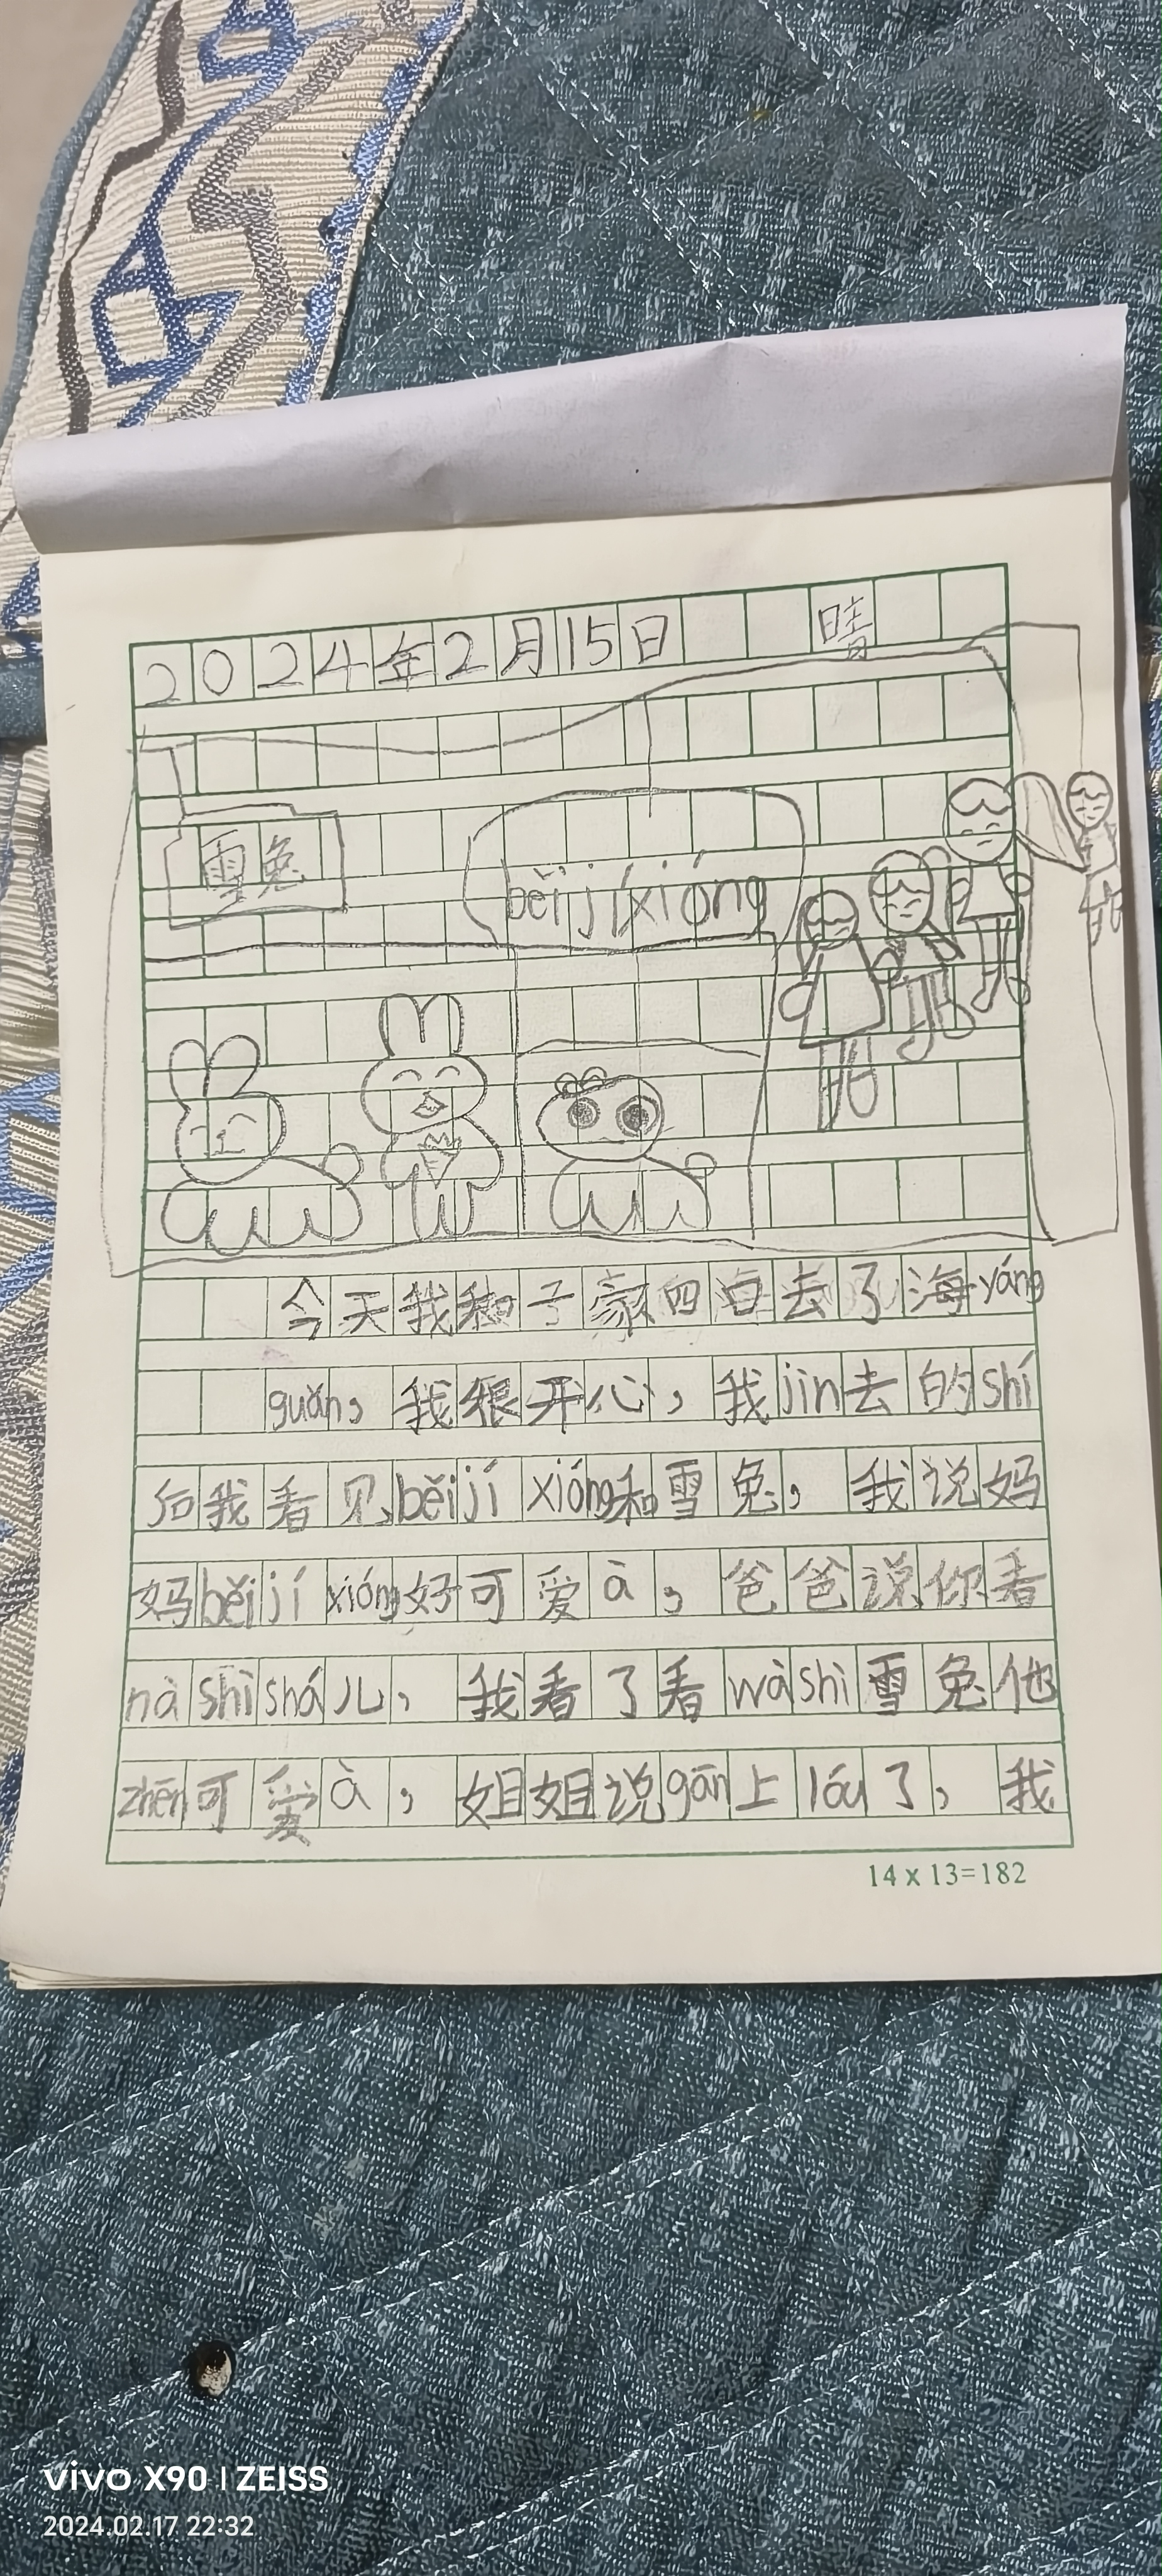 2024年2月15日 晴
雪兔
běijíxióng
今天我和子豪四白去了海yáng
guǎn，我很开心，我jìn去的shí
后我看见běijí xióng和雪兔，我说妈
妈běijí xióng好可爱à，爸爸说你看
nà shì shá儿，我看了看wà shì雪兔他
zhēn可爱à，姐姐说gān上lóu了，我
14×13=182
vivo X90 | ZEISS
2024.02.17 22:32